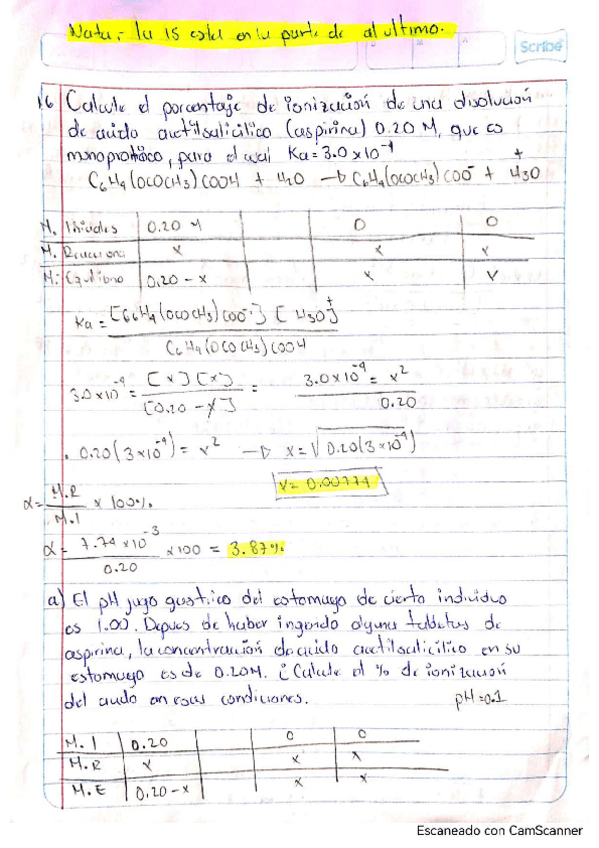 Nota:- la 15 esta en la parte de al ultimo.
Scribe
16 Calcule el porcentaje de ionización de una disolución
de acido acetilsalicilico (aspirina) 0.20 M, que es
monoprotico, para el cual Ka = 3.0 x 10⁻⁴
C₆H₄(OCOCH₃)COOH + H₂O → C₆H₄(OCOCH₃)COO⁻ + H₃O⁺
M. Iniciales 0.20 M 0 0
M. Reacciona x x x
M. Equilibrio 0.20 - x x x
Ka = [C₆H₄(OCOCH₃)COO⁻] [H₃O]⁺
C₆H₄(OCOCH₃)COOH
3.0 x 10⁻⁴ = [x][x] = 3.0 x 10⁻⁴ = x²
[0.20 - x] 0.20
0.20(3 x 10⁻⁴) = x² → x = √0.20(3 x 10⁻⁴)
x = 0.00774
α = M.R x 100%
M.I
α = 7.74 x 10⁻³ x 100 = 3.87%
0.20
a) El pH jugo gastrico del estomago de cierto individuo
es 1.00. Depues de haber ingerido alguna tabletas de
aspirina, la concentración de acido acetilsalicilico en su
estomago es de 0.20M. ¿Calcule el % de ionización
del acido en esas condiciones. pH = 0.1
M. I 0.20 0 0
M. R x x x
M. E 0.20 - x x x
Escaneado con CamScanner